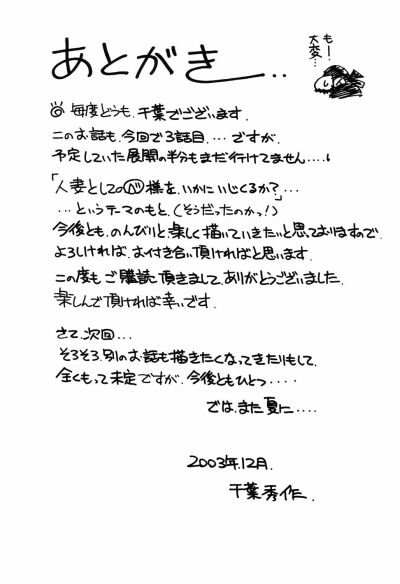 あとがき...
もー!
大変…
◎ 毎度どうも、千葉でございます。
このお話も、今回で3話目、…ですが、
予定していた展開の半分もまだ行けてません....。
「人妻としてのⓐ様を、いかにいじくるか?」...
...というテーマのもと、(そうだったのかっ!)
今後とも、のんびりと楽しく描いていきたいと思っておりますので、
よろしければ、お付き合い頂ければと思います。
この度も、ご購読頂きまして、ありがとうございました。
楽しんで頂ければ幸いです。
さて、次回...
そろそろ、別のお話も描きたくなってきたりもして、
全くもって未定ですが、今後ともひとつ....
では、また夏に....
2003年.12月.
千葉秀作.